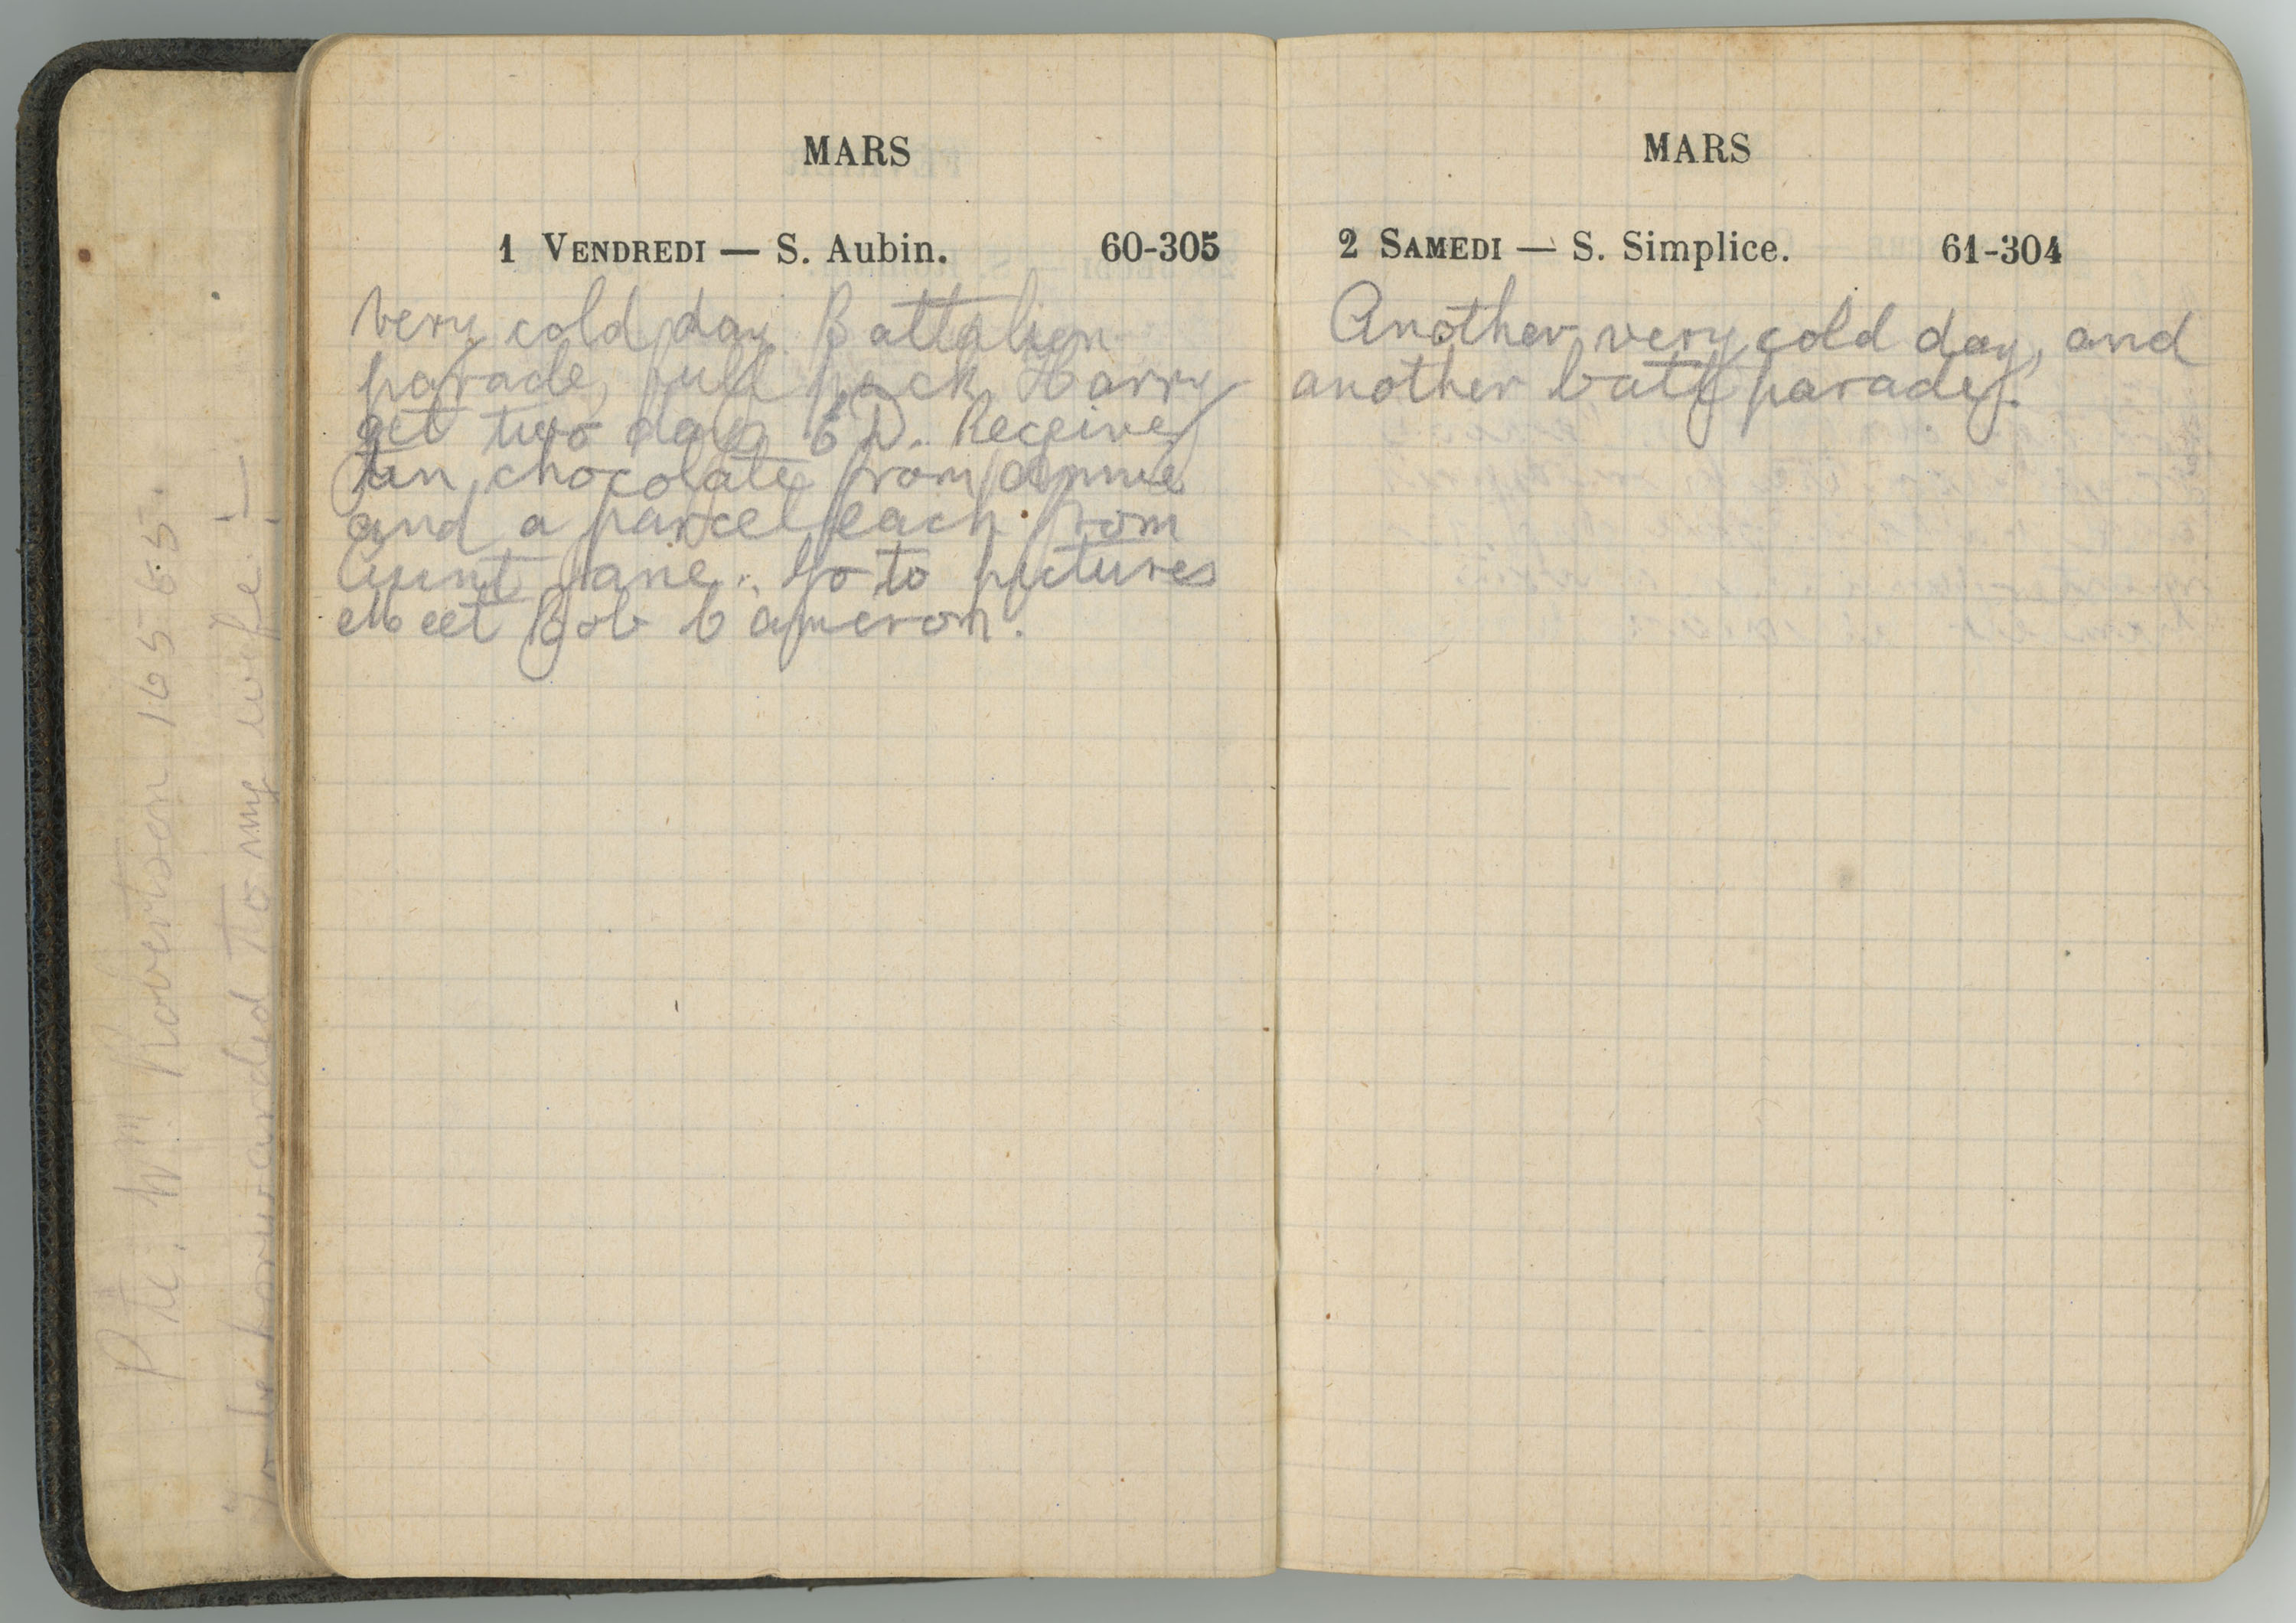 Pte. Wm Robertson 165665.
To be forwarded to my wife :—
MARS
1 VENDREDI — S. Aubin. 60-305
Very cold day. Battalion
parade, full pack, Harry
get two days C.D. Receive
tin chocolate from Annie
and a parcel each from
Aunt Jane. Go to pictures
Meet Bob Cameron.
MARS
2 SAMEDI — S. Simplice. 61-304
Another very cold day, and
another batt parade.